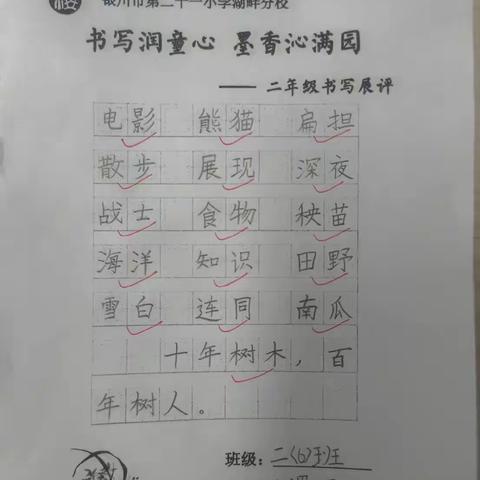 银川市第二十一小学湖畔分校
书写润童心 墨香沁满园
—— 二年级书写展评
电影 熊猫 扁担
散步 展现 深夜
战士 食物 秧苗
海洋 知识 田野
雪白 连同 南瓜
十年树木，百
年树人。
班级：二〈6〉班